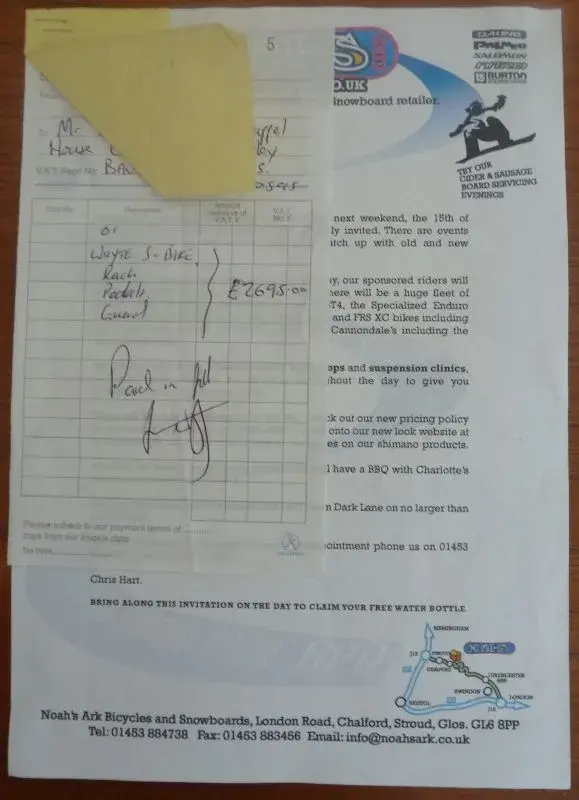 5
S
.UK
DAKINE
PALMER
SALOMON
BURTON
snowboard retailer.
TRY OUR
CIDER & SAUSAGE
BOARD SERVICING
EVENINGS
To Mr
House
V.A.T. Regd No.
Quantity Description Amount exclusive of V.A.T. £ V.A.T. Net £
01
WHYTE S-BIKE
Rack
Pedals
Guard
£2695.00
Paid in full
Please adhere to our payment terms of
days from our invoice date
next weekend, the 15th of
ly invited. There are events
atch up with old and new
y, our sponsored riders will
here will be a huge fleet of
T4, the Specialized Enduro
and FRS XC bikes including
Cannondale's including the
ops and suspension clinics,
hout the day to give you
ck out our new pricing policy
onto our new look website at
es on our shimano products.
l have a BBQ with Charlotte's
n Dark Lane on no larger than
ointment phone us on 01453
Chris Hart.
BRING ALONG THIS INVITATION ON THE DAY TO CLAIM YOUR FREE WATER BOTTLE.
BIRMINGHAM
J13
STROUD
CHALFORD
CIRENCESTER
SWINDON
BRISTOL
LONDON
Noah's Ark Bicycles and Snowboards, London Road, Chalford, Stroud, Glos. GL6 8PP
Tel: 01453 884738 Fax: 01453 883456 Email: info@noahsark.co.uk